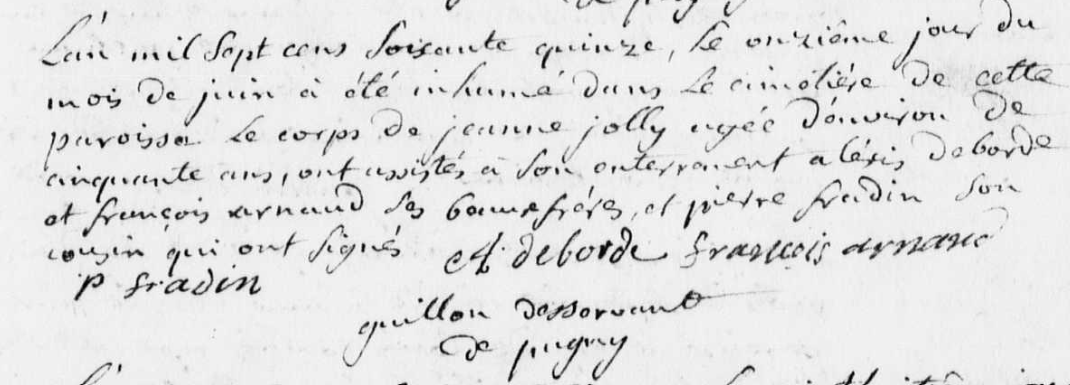 L'an mil sept cens soixante quinze, le onzième jour du
mois de juin à été inhumé dans le cimetiére de cette
paroisse le corps de jeanne jolly agée d'environ de
cinquante ans, ont assistés à son enterrement aléxis deborde
et françois arnaud ses beauxfréres, et pierre fradin son
cousin qui ont signés A deborde françois arnaud
p fradin
guillon desservant
de pugny